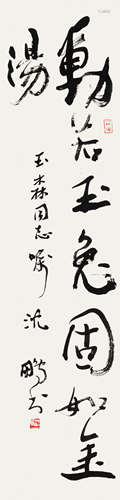 動若玉兔固如金
湯
玉森同志嘱 沈鹏书